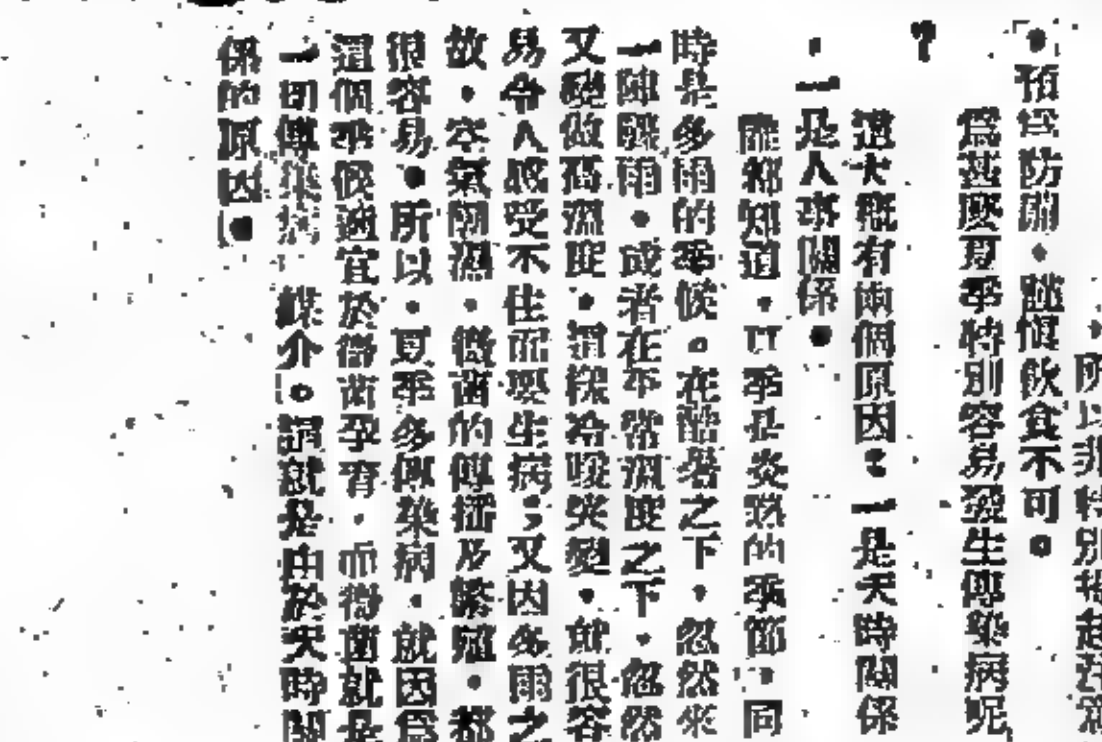 所以非特別提起注意
預爲防關・踏慎飲食不可。
爲甚麼夏季特別容易發生傳染病呢
？
這大概有兩個原因：一是天時關係
・一是人事關係・
誰都知道・夏季是炎熱的季節・同
時是多雨的季候。在酷暑之下・忽然來
一陣驟雨・或者在平常溫度之下・忽然
又變做高溫度・這樣冷暖突變・就很容
易令人感受不住而要生病；又因多雨之
故・空氣潮濕・微菌的傳播及繁殖・都
很容易・所以・夏季多傳染病・就因爲
這個季候適宜於微菌孕育・而微菌就是
一切傳染病 媒介。這就是由於天時關
係的原因・